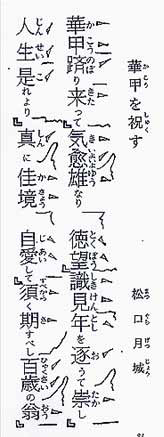 華甲を祝す
松口月城
華甲躋り来って気愈雄なり
徳望識見年を逐うて崇し
人生是れより真に佳境
自愛して須く期すべし百歳の翁